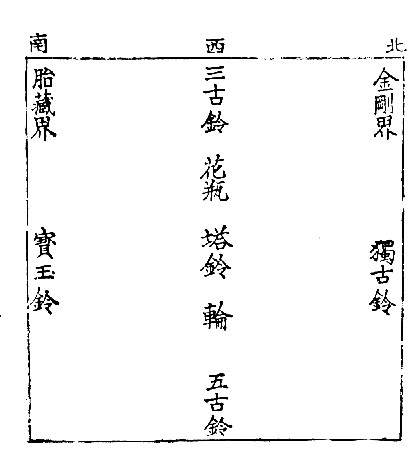 北
西
南
金剛界
獨古鈴
三古鈴
花瓶
塔鈴
輪
五古鈴
胎藏界
寶玉鈴